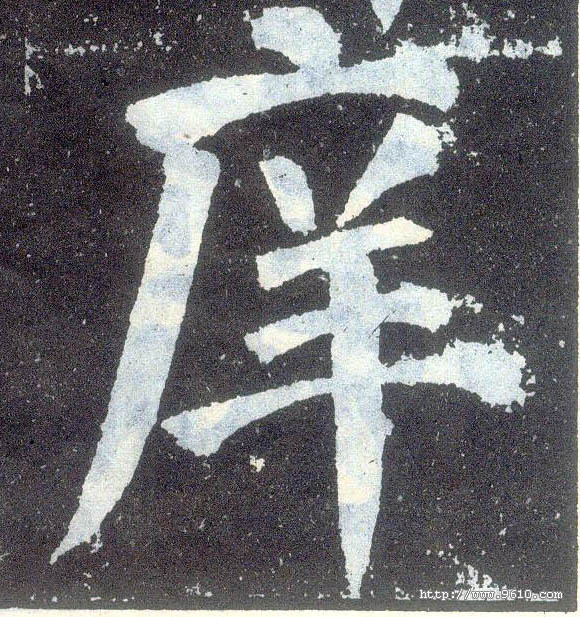 庠
http://www.9610.com